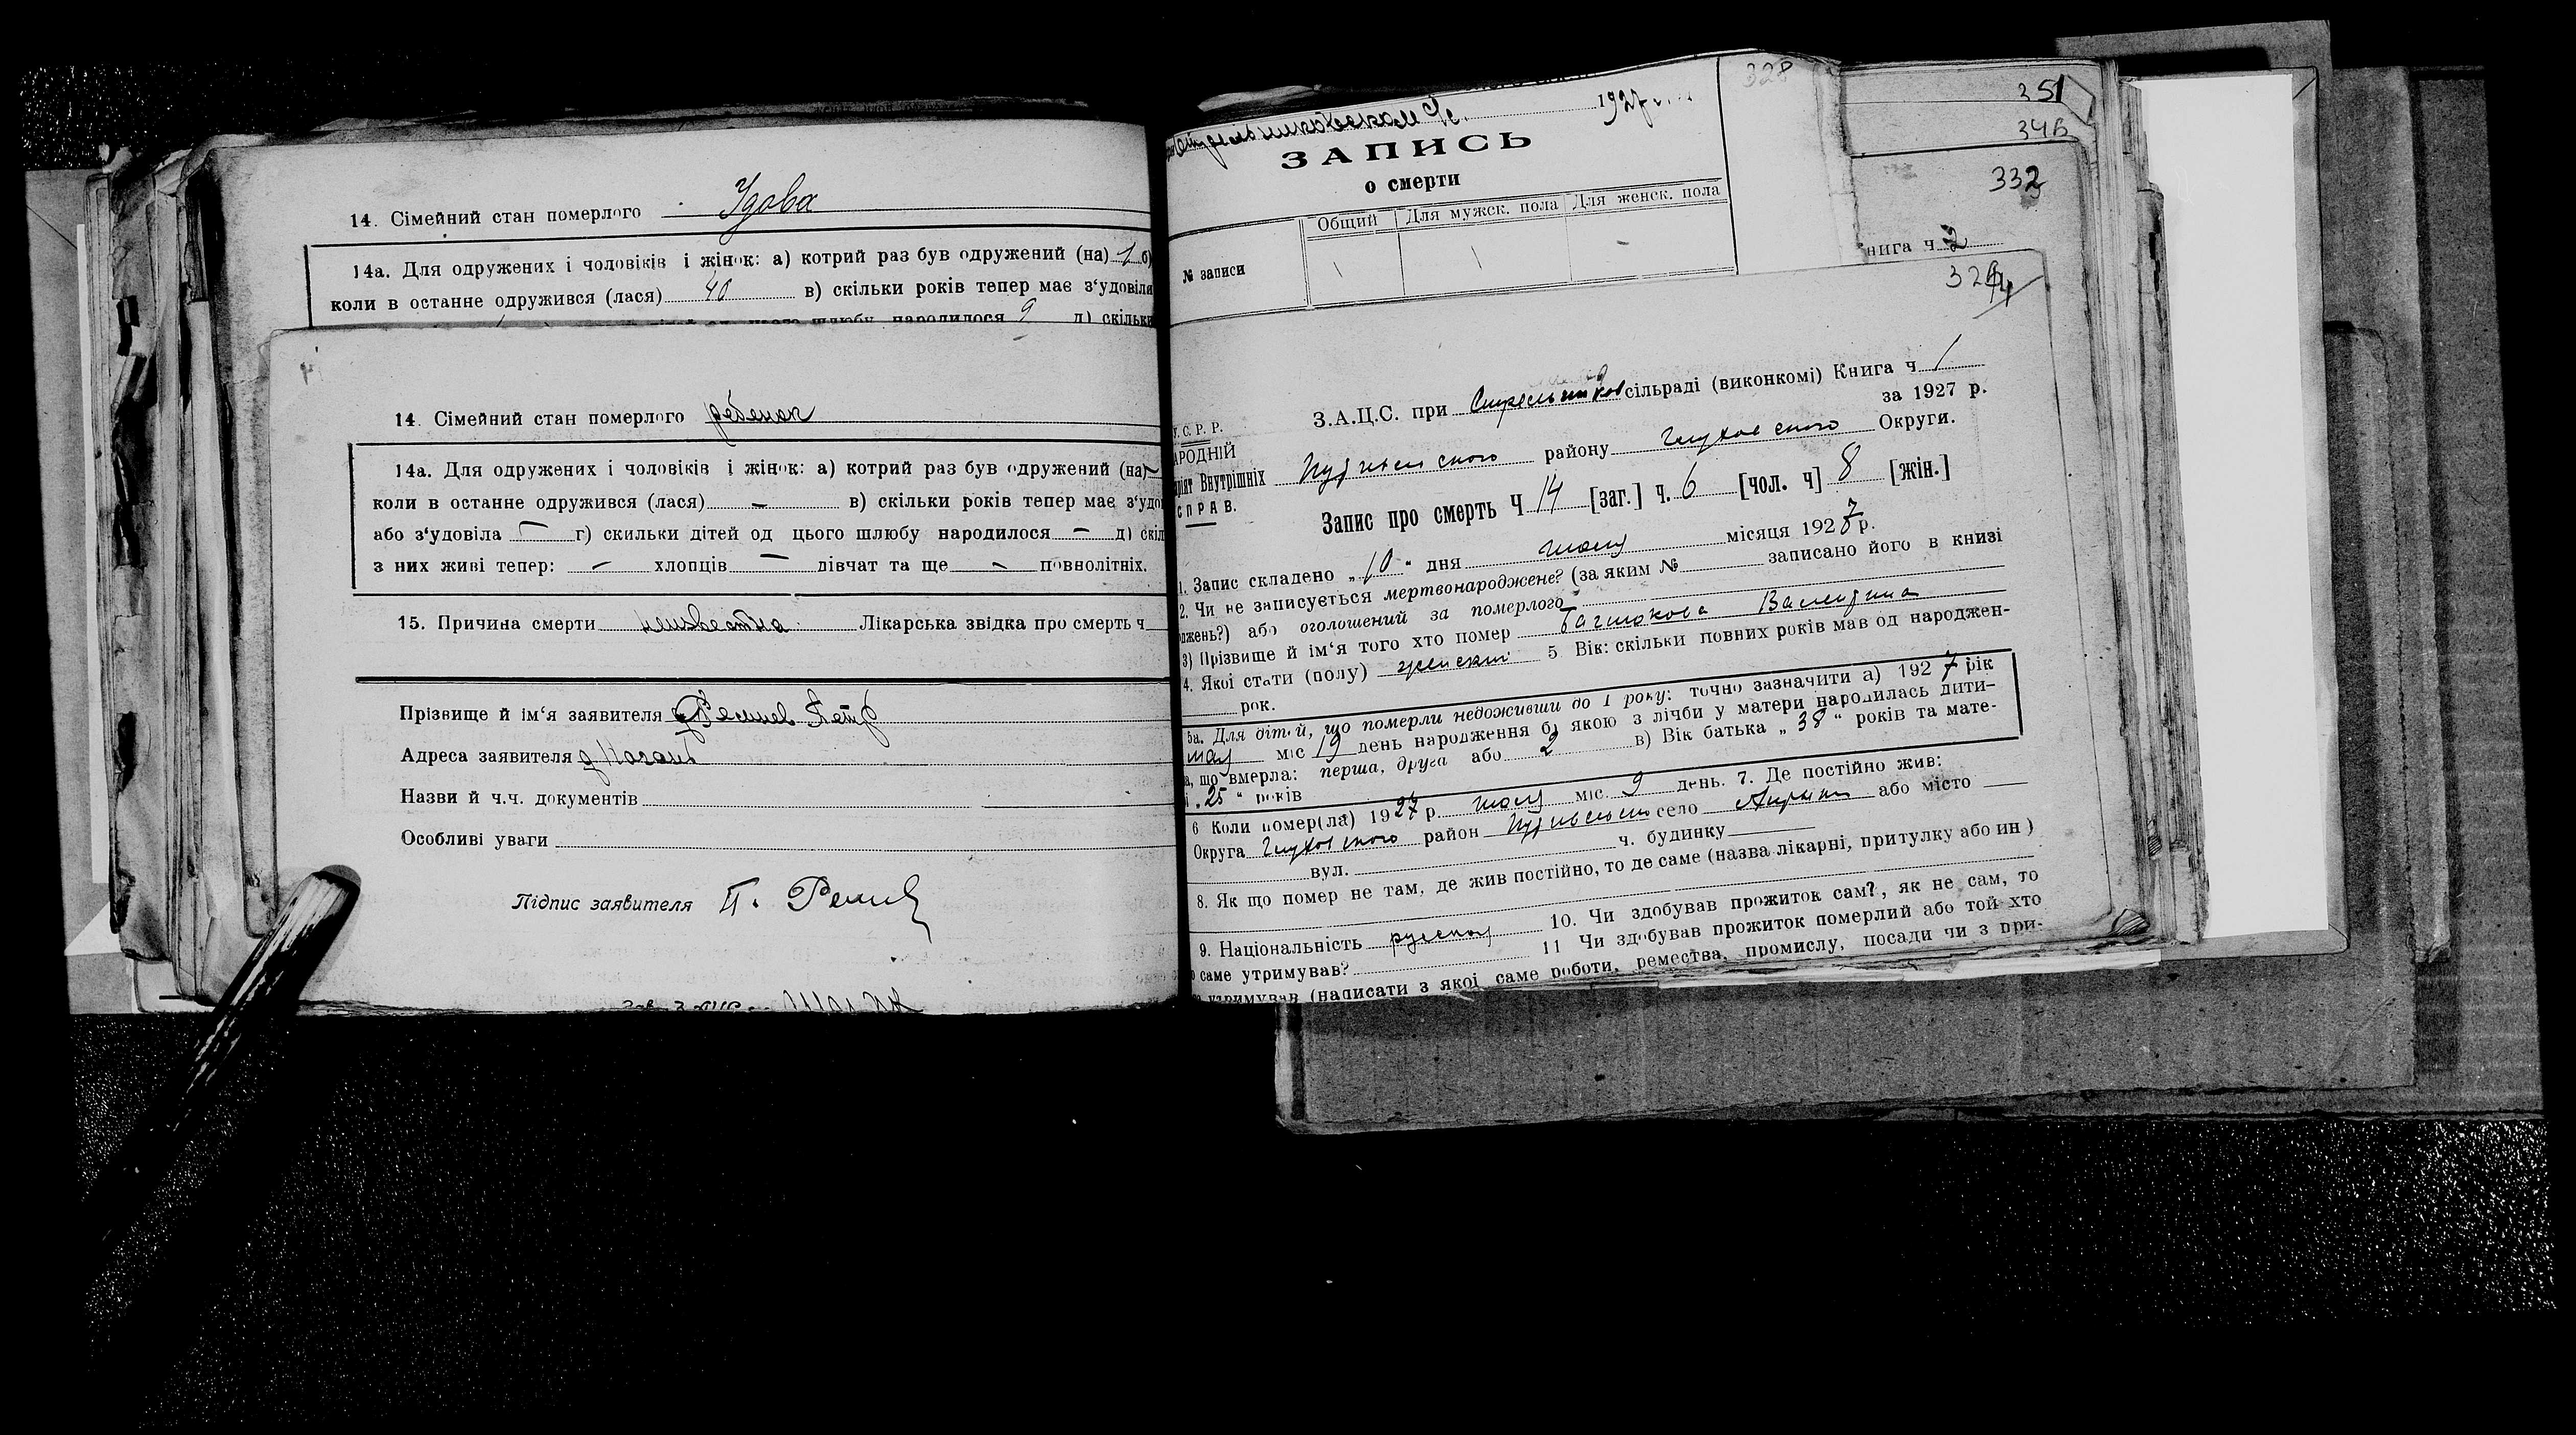 14. Сімейний стан померлого Удова
14а. Для одружених і чоловіків і жінок: а) котрий раз був одружений (на) 1 б)
коли в останне одружився (лася) 40 в) скільки років тепер має з‘удовіли
шлюбу народилося 9 д) скільки
14. Сімейний стан померлого ребенок
14а. Для одружених і чоловіків і жінок: а) котрий раз був одружений (на) —
коли в останне одружився (лася) — в) скільки років тепер має з‘удо
або з‘удовіла — г) скильки дітей од цього шлюбу народилося — д) скіл
з них живі тепер: — хлопців — дівчат та ще — повнолітніх.
15. Причина смерти неизвестна Лікарська звідка про смерть ч
Прізвище й ім‘я заявителя Петр
Адреса заявителя
Назви й ч.ч. документів
Особливі уваги
Підпис заявителя П.
1927
ЗАПИСЬ
о смерти
Общий Для мужск. пола Для женск. пола
№ записи
328
351
332
нига ч 2
З.А.Ц.С. при сільраді (виконкомі) Книга ч 1
за 1927 р.
У.С.Р.Р.
АРОДНІЙ
ріят Внутрішніх
СПРАВ.
Путивльского району Глуховского Округи.
Запис про смерть Ч 14 [заг.] ч. 6 [чол. ч] 8 [жін.]
1. Запис складено „10“ дня мая місяця 1927 р.
2. Чи не записується мертвонароджене? (за яким № записано його в книзі
джень?) або оголошений за померлого
3) Прізвище й ім‘я того хто помер Валентина
4. Якої стати (полу) женский 5 Вік: скільки повних років мав од народжен-
рок.
5а. Для дітей, що померли недоживши до 1 року: точно зазначити а) 1927 рік
мая міс 19 день народження б) якою з лічби у матери народилась дити-
а, що вмерла: перша, друга або 2 в) Вік батька „38“ років та мате-
і „25“ років
6 Коли помер(ла) 1927 р. мая міс. 9 день. 7. Де постійно жив:
Округа Глуховского район село або місто
вул. ч. будинку
8. Як що помер не там, де жив постійно, то де саме (назва лікарні, притулку або ин)
9. Національність русская 10. Чи здобував прожиток сам?, як не сам, то
о саме утримував? 11 Чи здобував прожиток померлий або той хто
утримував (написати з якої саме роботи, ремества, промислу, посади чи з при-